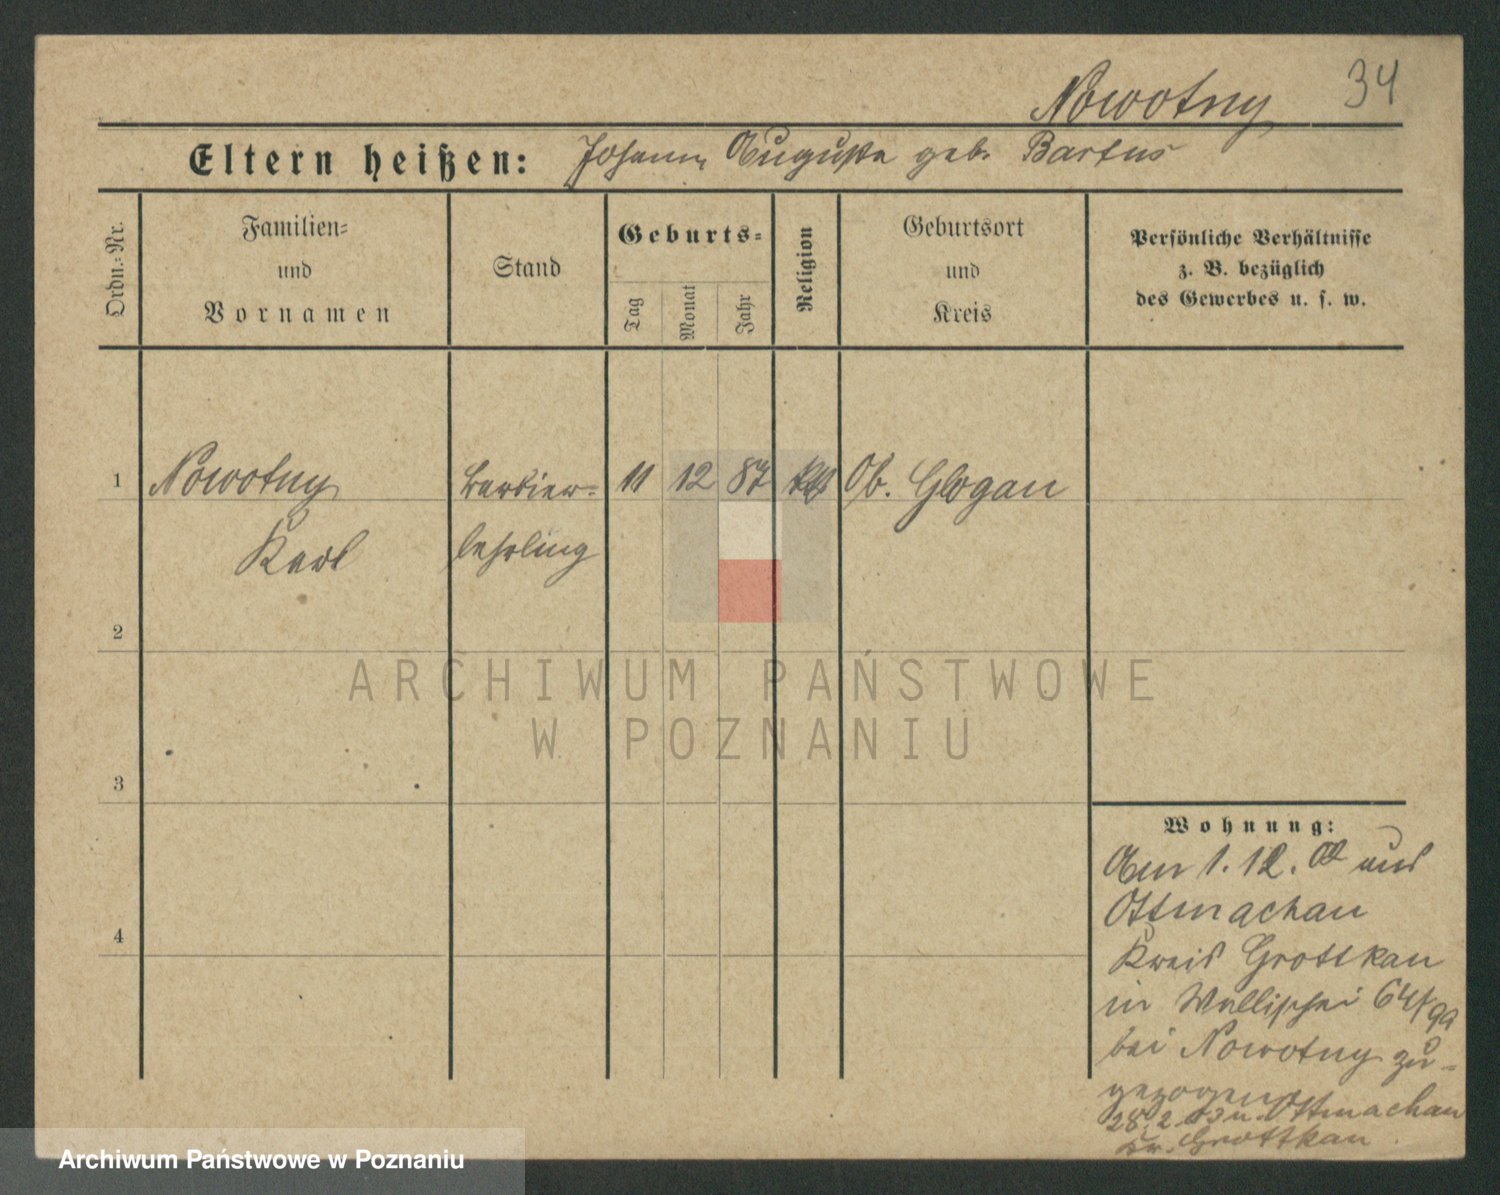 34
Nowotny
Eltern heißen: Johann Auguste geb. Bartus
Ordn.=Nr.
Familien=
und
Vornamen
Stand
Geburts=
Tag
Monat
Jahr
Religion
Geburtsort
und
Kreis
Persönliche Verhältnisse
z. B. bezüglich
des Gewerbes u. s. w.
1 Nowotny Barbier- 11 12 87 kth Ob. Glogau
Karl lehrling
2
ARCHIWUM PAŃSTWOWE
W POZNANIU
3
Wohnung:
Am 1.12.02 aus
Ottmachau
4
Kreis Grottkau
in Wallischei 64/
bei Nowotny zu-
gezogen
28.2.03 n. Ottmachau
Kr. Grottkau
Archiwum Państwowe w Poznaniu